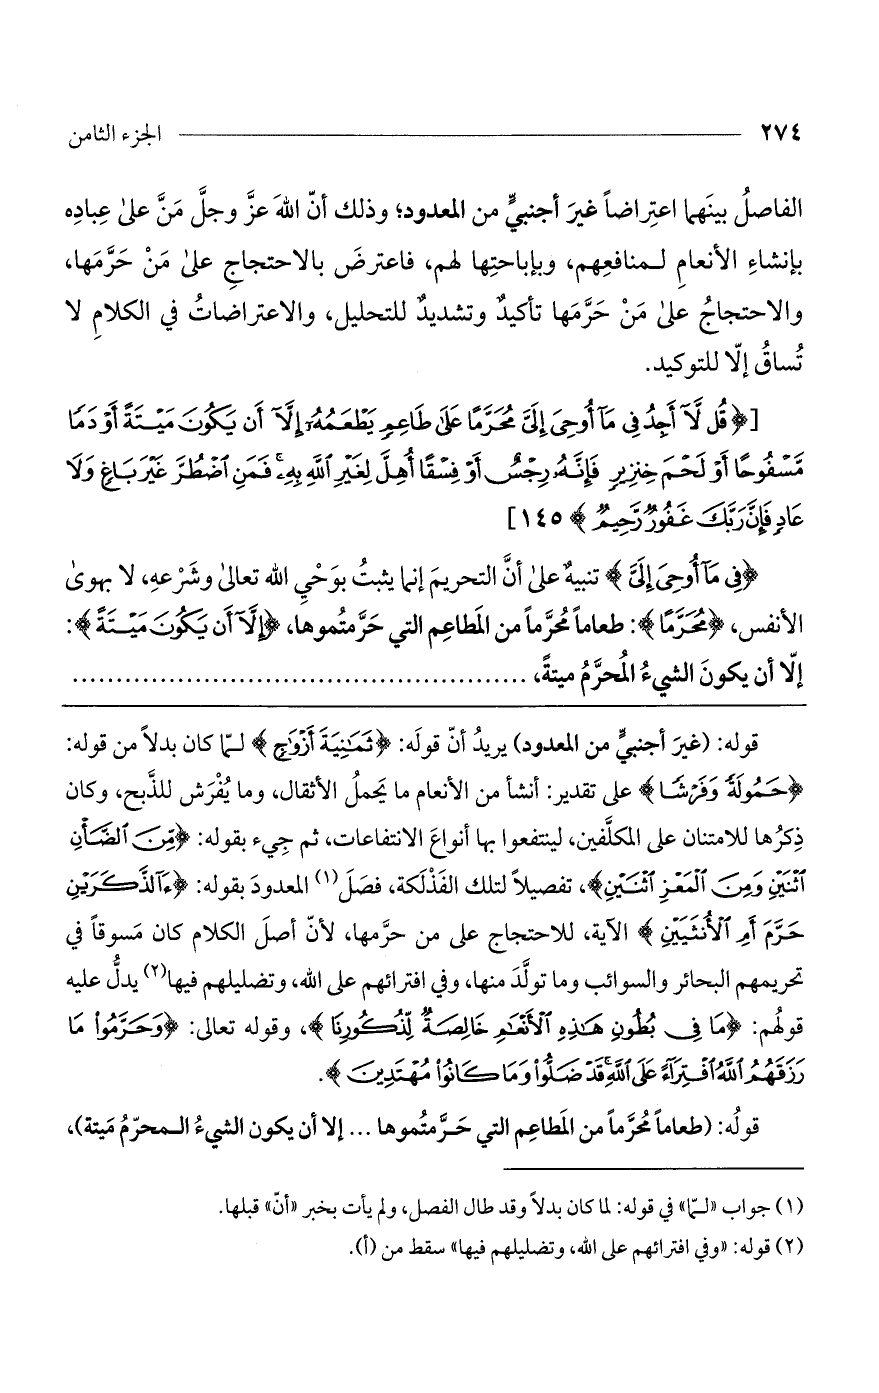 ٢٧٤ الجزء الثامن
الفاصلُ بينَهما اعتِراضاً غيرَ أجنبيٍّ من المعدود؛ وذلك أنّ اللهَ عزَّ وجلَّ مَنَّ علىٰ عِبادِه
بإنشاءِ الأنعامِ لـمنافعِهم، وبإباحتِها لهم، فاعترضَ بالاحتجاجِ علىٰ مَنْ حَرَّمَها،
والاحتجاجُ علىٰ مَنْ حَرَّمَها تأكيدٌ وتشديدٌ للتحليل، والاعتراضاتُ في الكلامِ لا
تُساقُ إلّا للتوكيد.
[﴿قُل لَّآ أَجِدُ فِى مَآ أُوحِىَ إِلَىَّ مُحَرَّمًا عَلَىٰ طَاعِمٍ يَطْعَمُهُۥٓ إِلَّآ أَن يَكُونَ مَيْتَةً أَوْ دَمًا
مَّسْفُوحًا أَوْ لَحْمَ خِنزِيرٍ فَإِنَّهُۥ رِجْسٌ أَوْ فِسْقًا أُهِلَّ لِغَيْرِ ٱللَّهِ بِهِۦ ۚ فَمَنِ ٱضْطُرَّ غَيْرَ بَاغٍ وَلَا
عَادٍ فَإِنَّ رَبَّكَ غَفُورٌ رَّحِيمٌ﴾ ١٤٥]
﴿فِى مَآ أُوحِىَ إِلَىَّ﴾ تنبيهٌ علىٰ أنَّ التحريمَ إنما يثبتُ بوَحْيِ الله تعالىٰ وشَرْعِه، لا بهوىٰ
الأنفس، ﴿مُحَرَّمًا﴾: طعاماً مُحرَّماً من المَطاعِم التي حَرَّمتُموها، ﴿إِلَّآ أَن يَكُونَ مَيْتَةً﴾:
إلّا أن يكونَ الشيءُ المُحرَّمُ ميتةً، ....................................................
قوله: (غيرَ أجنبيٍّ من المعدود) يريدُ أنّ قولَه: ﴿ثَمَٰنِيَةَ أَزْوَٰجٍ﴾ لـمّا كان بدلاً من قوله:
﴿حَمُولَةً وَفَرْشًا﴾ على تقدير: أنشأ من الأنعام ما يَحملُ الأثقال، وما يُفْرَش للذَّبح، وكان
ذِكرُها للامتنان على المكلَّفين، لينتفعوا بها أنواعَ الانتفاعات، ثم جِيء بقوله: ﴿مِّنَ ٱلضَّأْنِ
ٱثْنَيْنِ وَمِنَ ٱلْمَعْزِ ٱثْنَيْنِ﴾، تفصيلاً لتلك الفَذْلَكة، فصَلَ(١) المعدودَ بقوله: ﴿ءَآلذَّكَرَيْنِ
حَرَّمَ أَمِ ٱلْأُنثَيَيْنِ﴾ الآية، للاحتجاج على من حرَّمها، لأنّ أصلَ الكلام كان مَسوقاً في
تحريمهم البحائر والسوائب وما تولَّدَ منها، وفي افترائهم على الله، وتضليلهم فيها(٢) يدلُّ عليه
قولُهم: ﴿مَا فِى بُطُونِ هَٰذِهِ ٱلْأَنْعَٰمِ خَالِصَةٌ لِّذُكُورِنَا﴾، وقوله تعالى: ﴿وَحَرَّمُوا۟ مَا
رَزَقَهُمُ ٱللَّهُ ٱفْتِرَآءً عَلَى ٱللَّهِ ۚ قَدْ ضَلُّوا۟ وَمَا كَانُوا۟ مُهْتَدِينَ﴾.
قولُه: (طعاماً مُحرَّماً من المَطاعِم التي حَرَّمتُموها ... إلا أن يكون الشيءُ الـمحرّمُ مَيتة)،
(١) جواب «لـمّا» في قوله: لما كان بدلاً وقد طال الفصل، ولم يأت بخبر «أنّ» قبلها.
(٢) قوله: «وفي افترائهم على الله، وتضليلهم فيها» سقط من (أ).